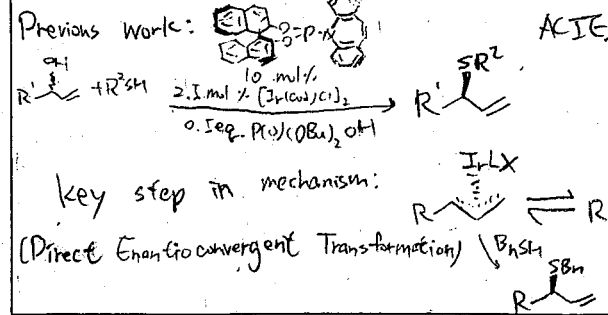 Previous work:
ACIE,
OH
R' + R²SH
O O P N
10 mol%
2.5 mol % [Ir(cod)Cl]₂
0.5eq. P(O)(OBu)₂OH
SR²
R'
key step in mechanism:
IrLX
R ⇌ R
(Direct Enantioconvergent Transformation)
BnSH
SBn
R